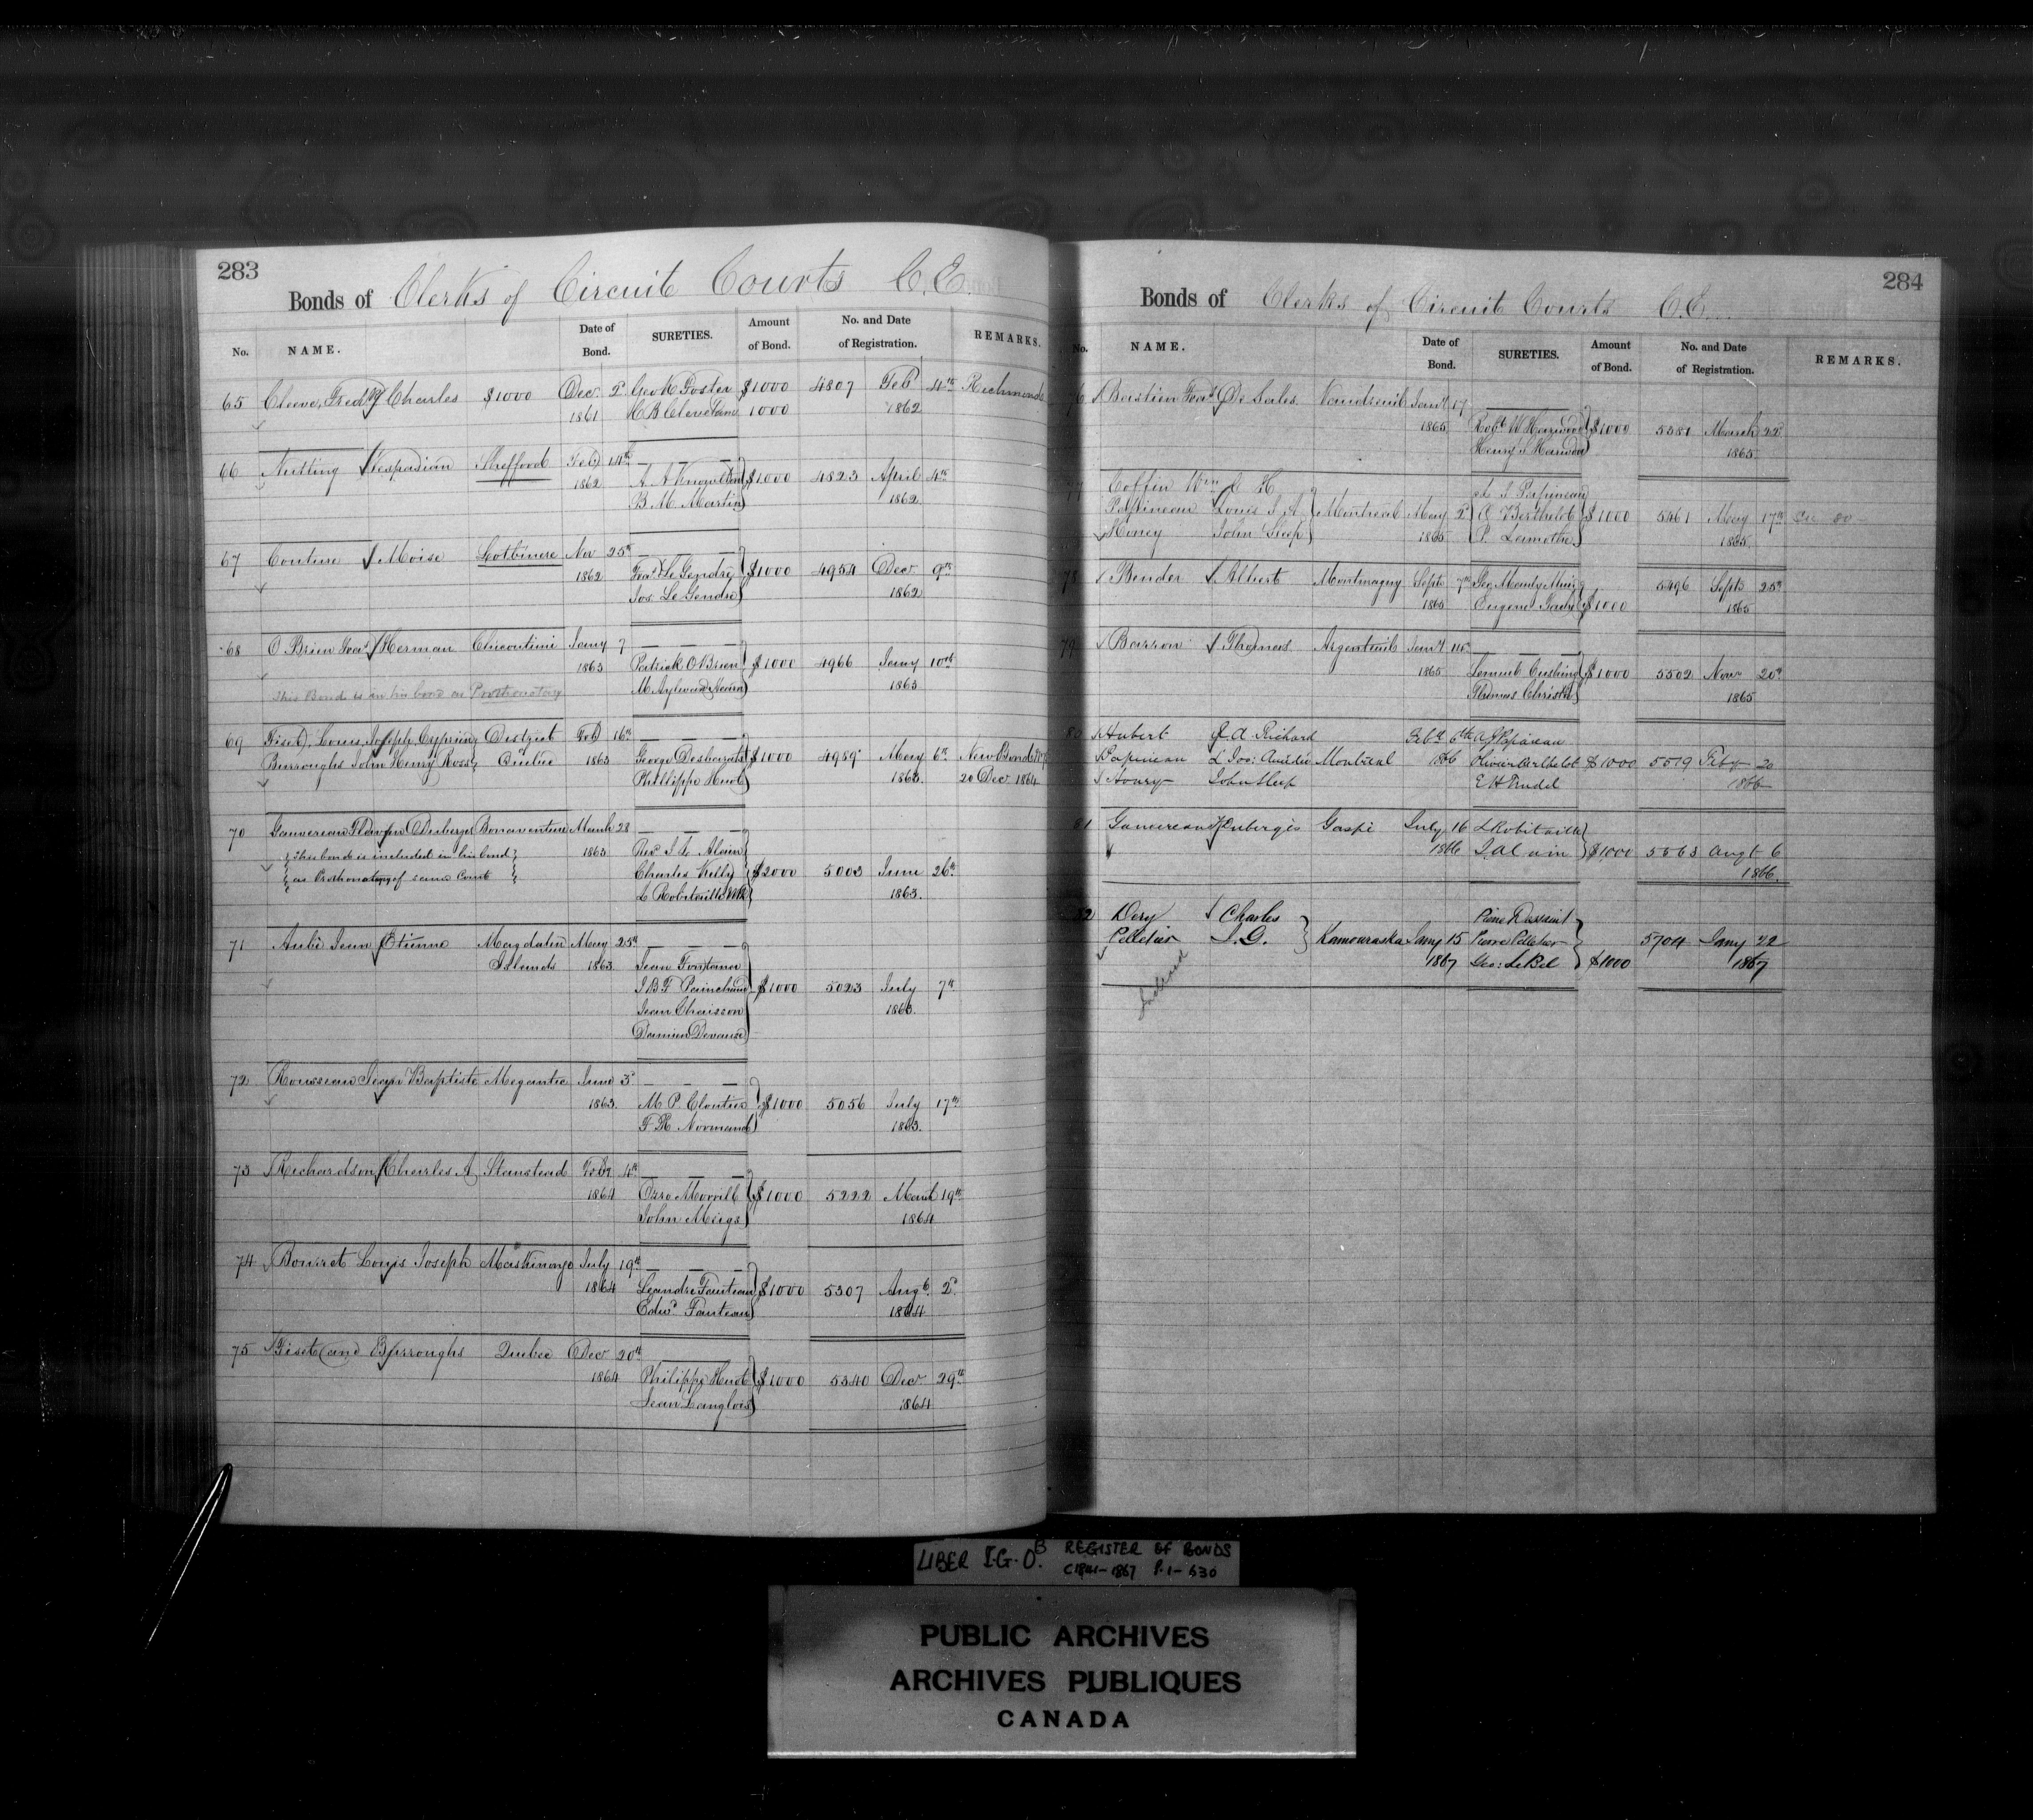 283
Bonds of Clerks of Circuit Courts C.E.
No. NAME. Date of Bond. SURETIES. Amount of Bond. No. and Date of Registration. REMARKS.
65 Cleeve, Fredk Charles $1000 Dec. 2d Geo K Foster $1000 4807 Feb 4th Richmond
1861 C B Cleveland 1000 1862
66 Nutting Vespasian Shefford Feb 14th
1862 A A Knowlton $1000 4823 April 4th
B. M. Martin 1862
67 Couture Moise Lotbiniere Nov 25th
1862 Fras Le Gendre $1000 4954 Decr 9th
Jos. Le Gendre 1862
68 O'Brien Fras Herman Chicoutimi Jany 7
1863 Patrick O'Brien $1000 4966 Jany 10th
M. Aylward 1863
This Bond is in his bond as Prothonotary
69 Fiset, Louis Joseph Cyprien District Feb 16th
Burroughs John Henry Ross Quebec 1863 George Desbarats $1000 4959 May 6th New Bond
Phillippe Huot 1863. 20 Dec 1864
70 Gauvreau Flavien Duberges Bonaventure March 28
This bond is included in his bond 1863 Revd J. L. Alain
as Prothonotary of same Court Charles Kelly $2000 5003 June 26th
L Robitaille 1863.
71 Aubé Jean Etienne Magdalen May 25th
Islands 1863 Jean Fontana
J B F Painchaud $1000 5023 July 7th
Jean Chaisson 1863.
Damien Devaux
72 Rousseau Jean Baptiste Megantic June 3d
1863. M. P. Cloutier $1000 5056 July 17th
F. X. Normand 1863.
73 Richardson Charles A. Stanstead Feby 4th
1864 Ozro Morrill $1000 5222 March 19th
John Meigs 1864
74 Bourret Louis Joseph Maskinongé July 19th
1864 Leandre Fauteux $1000 5307 Augt 2d
Edwd Fauteux 1864
75 Fiset and Burroughs Quebec Decr 20th
1864 Philippe Huot $1000 5340 Decr 29th
Jean Langlois 1864
284
Bonds of Clerks of Circuit Courts C.E.
No. NAME. Date of Bond. SURETIES. Amount of Bond. No. and Date of Registration. REMARKS.
76 Bastien Fras De Sales Vaudreuil Jany 17
1865 Robt W Harwood $1000 5381 March 22d
Henry S Harwood 1865
77 Coffin Wm C H L J Papineau
Papineau Louis J A Montreal May 2d O Berthelot $1000 5461 May 17th
Honey John Sleep 1865 P. Lamothe 1865.
78 Bender Albert Montmagny Septr 7th
1865 Eugene $1000 5496 Septr 25th
1865
79 Barron Thomas Argenteuil Jany
1865 Lemuel Cushing $1000 5502 Novr 20th
Thomas Christie 1865
80 Hubert R. A. Richard 6th Papineau
Papineau L. Jos: Amédée Montreal 1866 Olivier Berthelot $1000 5519 Feby 20
Honey John Sleep E H Trudel 1866
81 Gauvreau Duberges Gaspé July 16 L Robitaille
1866 J Alain $1000 5563 Augt 6
1866.
82 Dery Charles Pierre Dessaint
Pelletier J. G. Kamouraska Jany 15 Pierre Pelletier 5704 Jany 22
1867 Geo: LeBel $1000 1867
LIBER I.G.O.B REGISTER OF BONDS
C1841-1867 P.1-530
PUBLIC ARCHIVES
ARCHIVES PUBLIQUES
CANADA